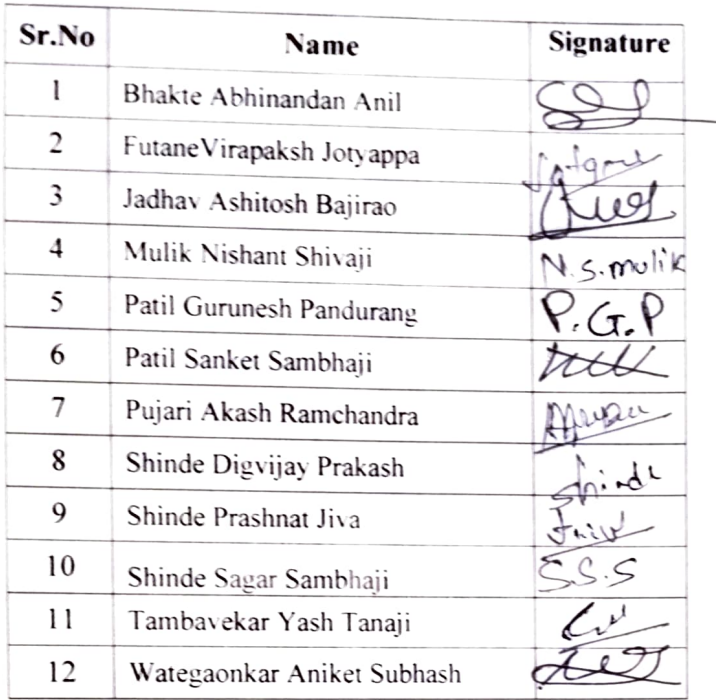 Sr.No Name Signature
1 Bhakte Abhinandan Anil
2 FutaneVirapaksh Jotyappa
3 Jadhav Ashitosh Bajirao
4 Mulik Nishant Shivaji N.S.mulik
5 Patil Gurunesh Pandurang P.G.P
6 Patil Sanket Sambhaji
7 Pujari Akash Ramchandra
8 Shinde Digvijay Prakash Shinde
9 Shinde Prashnat Jiva
10 Shinde Sagar Sambhaji S.S.S
11 Tambavekar Yash Tanaji
12 Wategaonkar Aniket Subhash